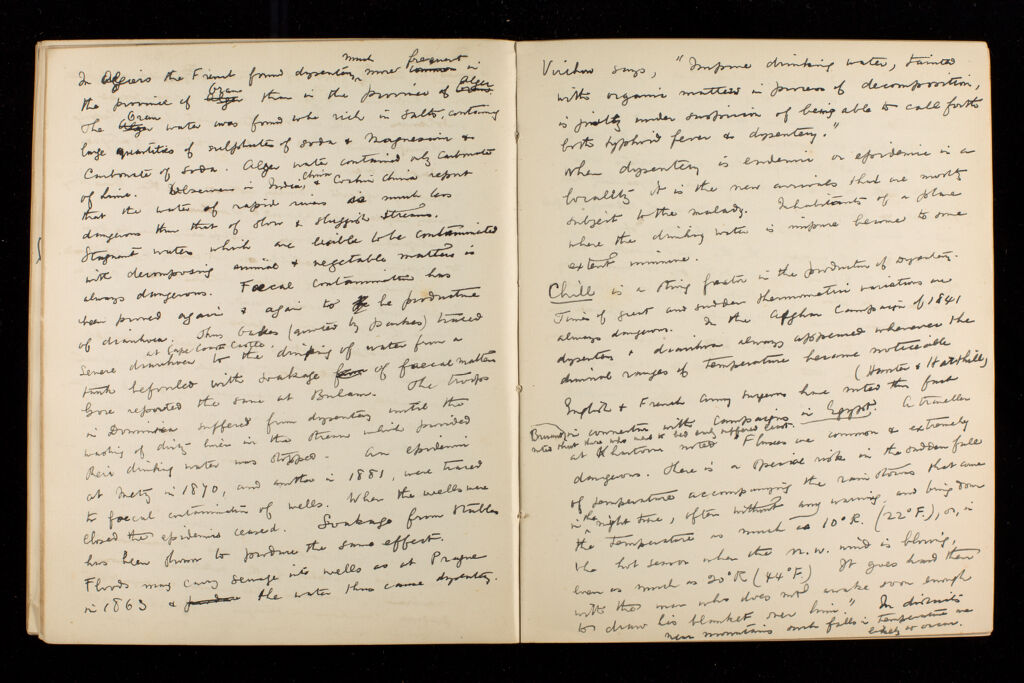 In Algiers the French found dysentery much more common frequent in
the province of Alger Oran than in the province of Oran Alger
The Alger Oran water was found to be rich in salts, containing
large quantities of sulphates of soda & Magnesium &
Carbonate of Soda. Alger water contained only Carbonate
of lime. Observers in India, China & Cochin China report
that the water of rapid rivers is much less
dangerous than that of slow & sluggish streams.
Stagnant waters which are liable to be contaminated
with decomposing animal & vegetable matters is
always dangerous. Faecal contamination has
been proved again & again to be productive
of diarrhoea. Thus Oakes (quoted by Parkes) traced
severe diarrhoea at Cape Coast Castle to the drinking of water from a
tank befouled with soakage from of faecal matters
Gore reported the same at Bulama. The troops
in Dominica suffered from dysentery until the
washing of dirty linen in the stream which provided
their drinking water was stopped. An epidemic
at Metz in 1870, and another in 1881, were traced
to faecal contamination of wells. When the wells were
closed the epidemics ceased. Soakage from stables
has been shown to produce the same effect.
Floods may carry sewage into wells as at Prague
in 1863 & produce the water thus cause dysentery.
Virchow says, "Impure drinking water, tainted
with organic matters in process of decomposition,
is justly under suspicion of being able to call forth
both typhoid fever & dysentery."
When dysentery is endemic or epidemic in a
locality it is the new arrivals that are mostly
subject to the malady. Inhabitants of a place
where the drinking water is impure become to some
extent immune.
Chill is a strong factor in the production of dysentery.
Times of great and sudden thermometric variations are
always dangerous. In the Afghan Campaign of 1841
dysentery & diarrhoea always appeared whenever the
diurnal ranges of temperature became noticeable
(Hunter & Harthill)
English & French army surgeons have noted this fact
in connection with Campaigns in Egypt. A traveller
noted that those who had to bed early suffered least.
at Khartoum noted "Fluxes are common & extremely
dangerous. There is a special risk in the sudden falls
of temperature accompanying the rain storms that come
in the night time, often without any warning, and bring down
the temperature as much as 10°R. (22°F.), or, in
the hot season when the N.W. wind is blowing,
even as much as 20°R (44°F.) It goes hard then
with the man who does not wake soon enough
to draw his blanket over him." In districts
near mountains such falls in temperature are
likely to occur.